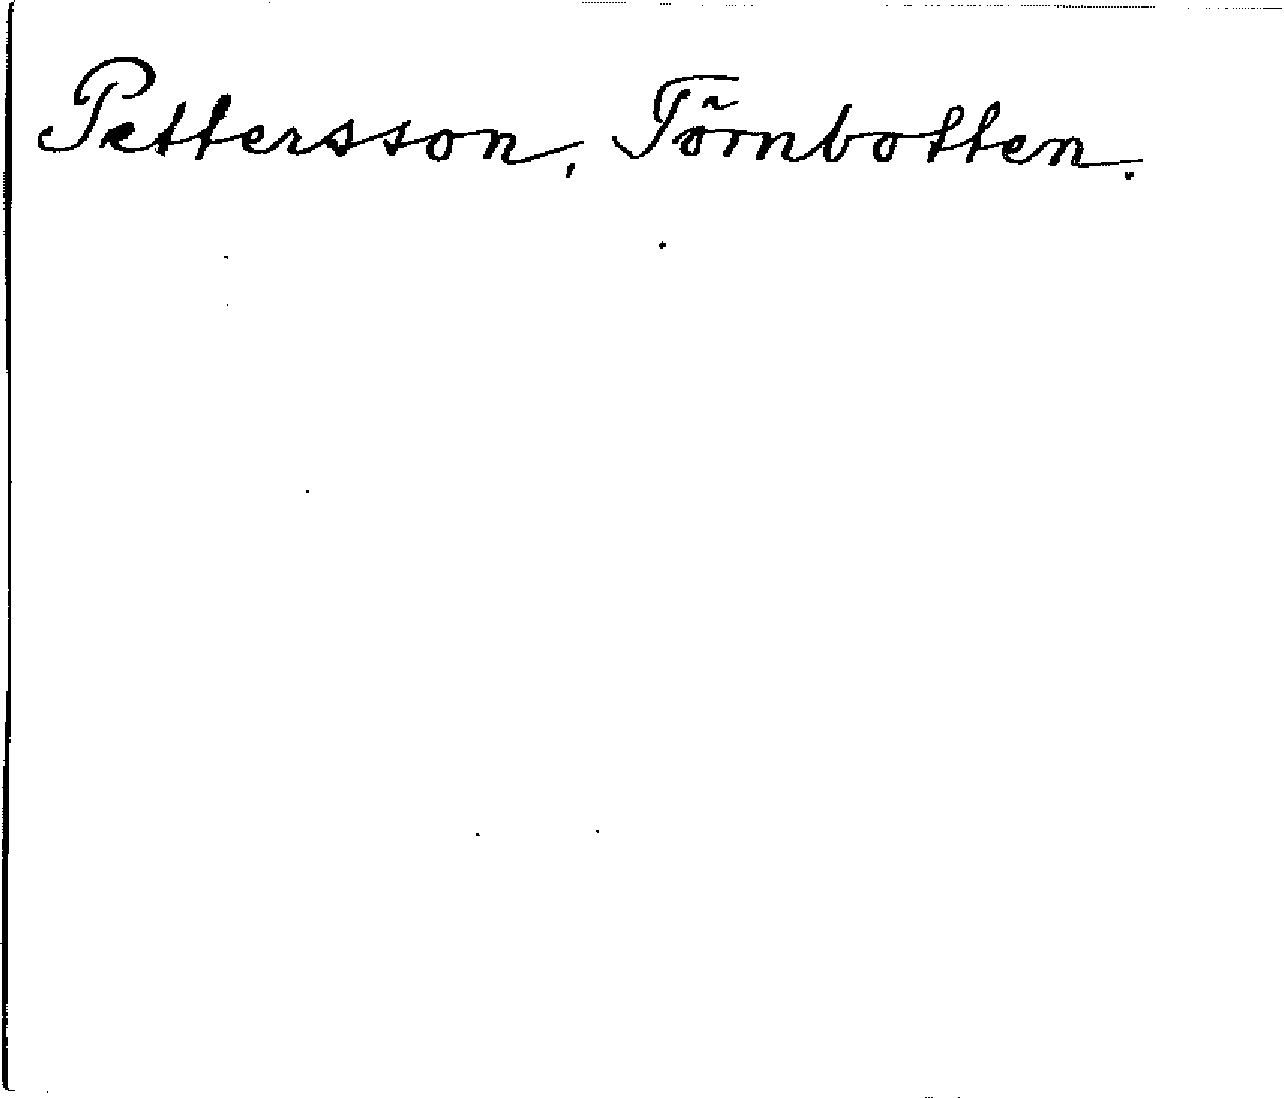 Pettersson, Törnbotten.